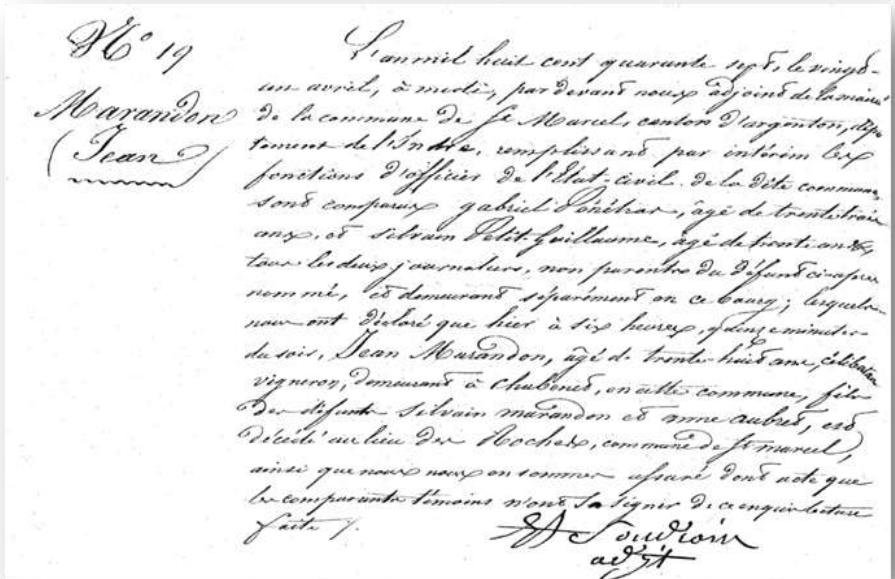 N° 19
Marandon
(Jean)
L'an mil huit cent quarante sept, le vingt-
un avril, à midi, par devant nous adjoint de la mairie
de la commune de St Marcel, canton d'argenton, dépar
tement de l'Indre, remplissant par intérim les
fonctions d'officier de l'Etat-civil de la dite commune,
sont comparus gabriel âgé de trente trois
ans, et silvain Petit-Guillaume, âgé de trente ans,
tous les deux journaliers, non parents du défunt ci-après
nommé, et demeurant séparément en ce bourg; lesquels
nous ont déclaré que hier à six heures, quinze minutes
du soir, Jean Marandon, âgé de trente-huit ans, célibataire
vigneron, demeurant à chabenet, en cette commune, fils
des défunts silvain marandon et anne aubret, est
décédé au lieu des Roches, commune de St marcel,
ainsi que nous nous en sommes assuré dont acte que
les comparants témoins n'ont su signer de ce enquis lecture
faite /.
adjt